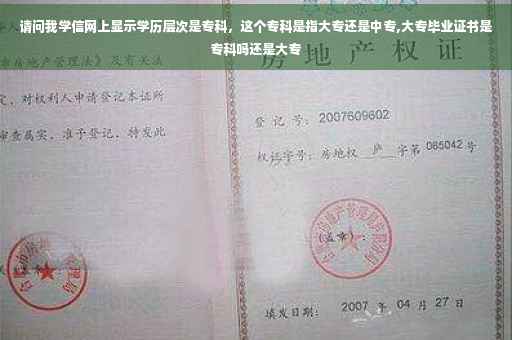 请问我学信网上显示学历层次是专科，这个专科是指大专还是中专,大专毕业证书是
专科吗还是大专
房地产权证
房地产管理法》及有关法
定，对权利人申请登记本证所
审查属实，准予登记，特发此
登记号：2007609602
权证字号：房地权 庐 字第 085042 号
(盖章)：
填发日期： 2007 年 04 月 27 日